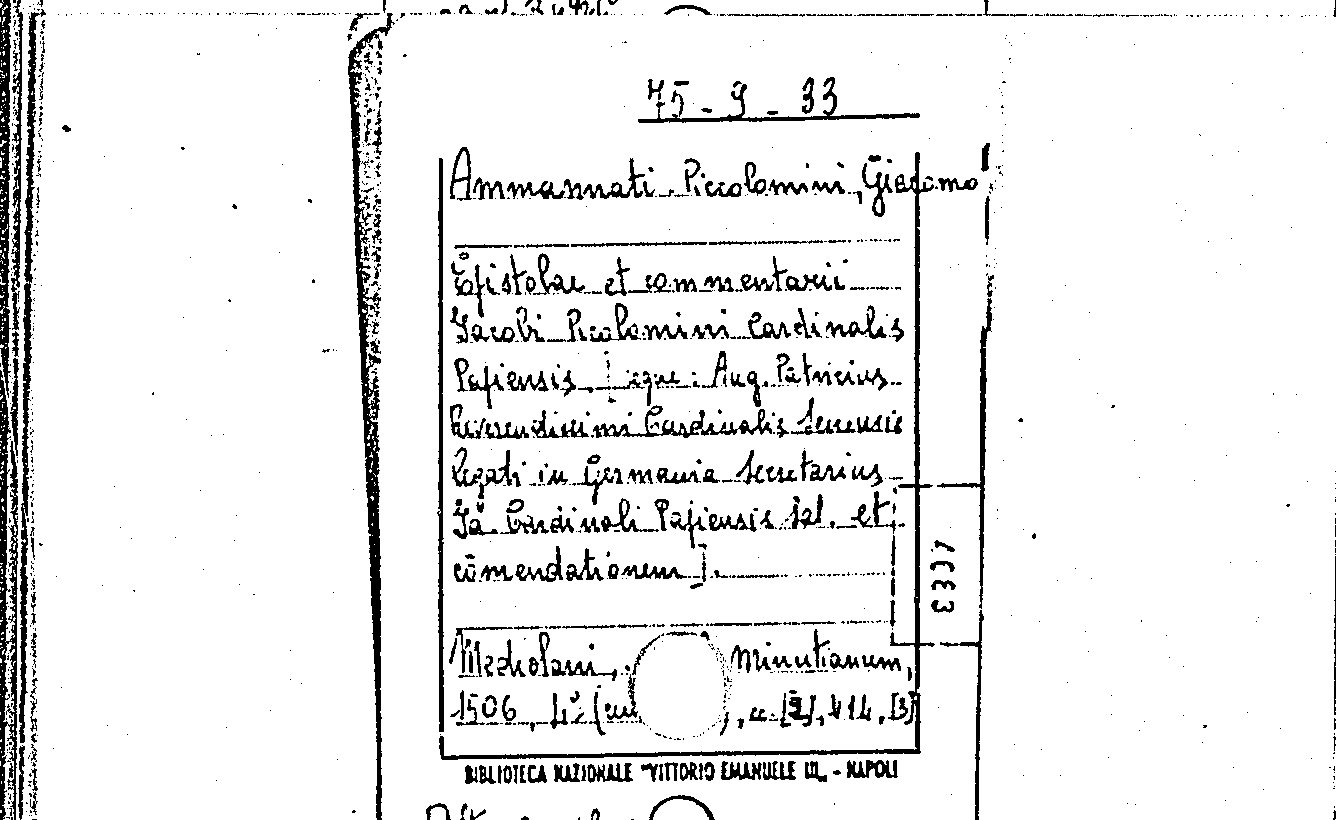 75-9-33
Ammannati Piccolomini, Giacomo
Epistolae et commentarii
Jacobi Picolomini Cardinalis
Papiensis. [Seque: Aug. Patricius
Reverendissimi Cardinalis Senensis
legati in Germania Secretarius
Ja. Cardinali Papiensis sal. et
cōmendationem].
Mediolani, Minutianum,
1506, 4°, 414, [3]
BIBLIOTECA NAZIONALE "VITTORIO EMANUELE III„ - NAPOLI